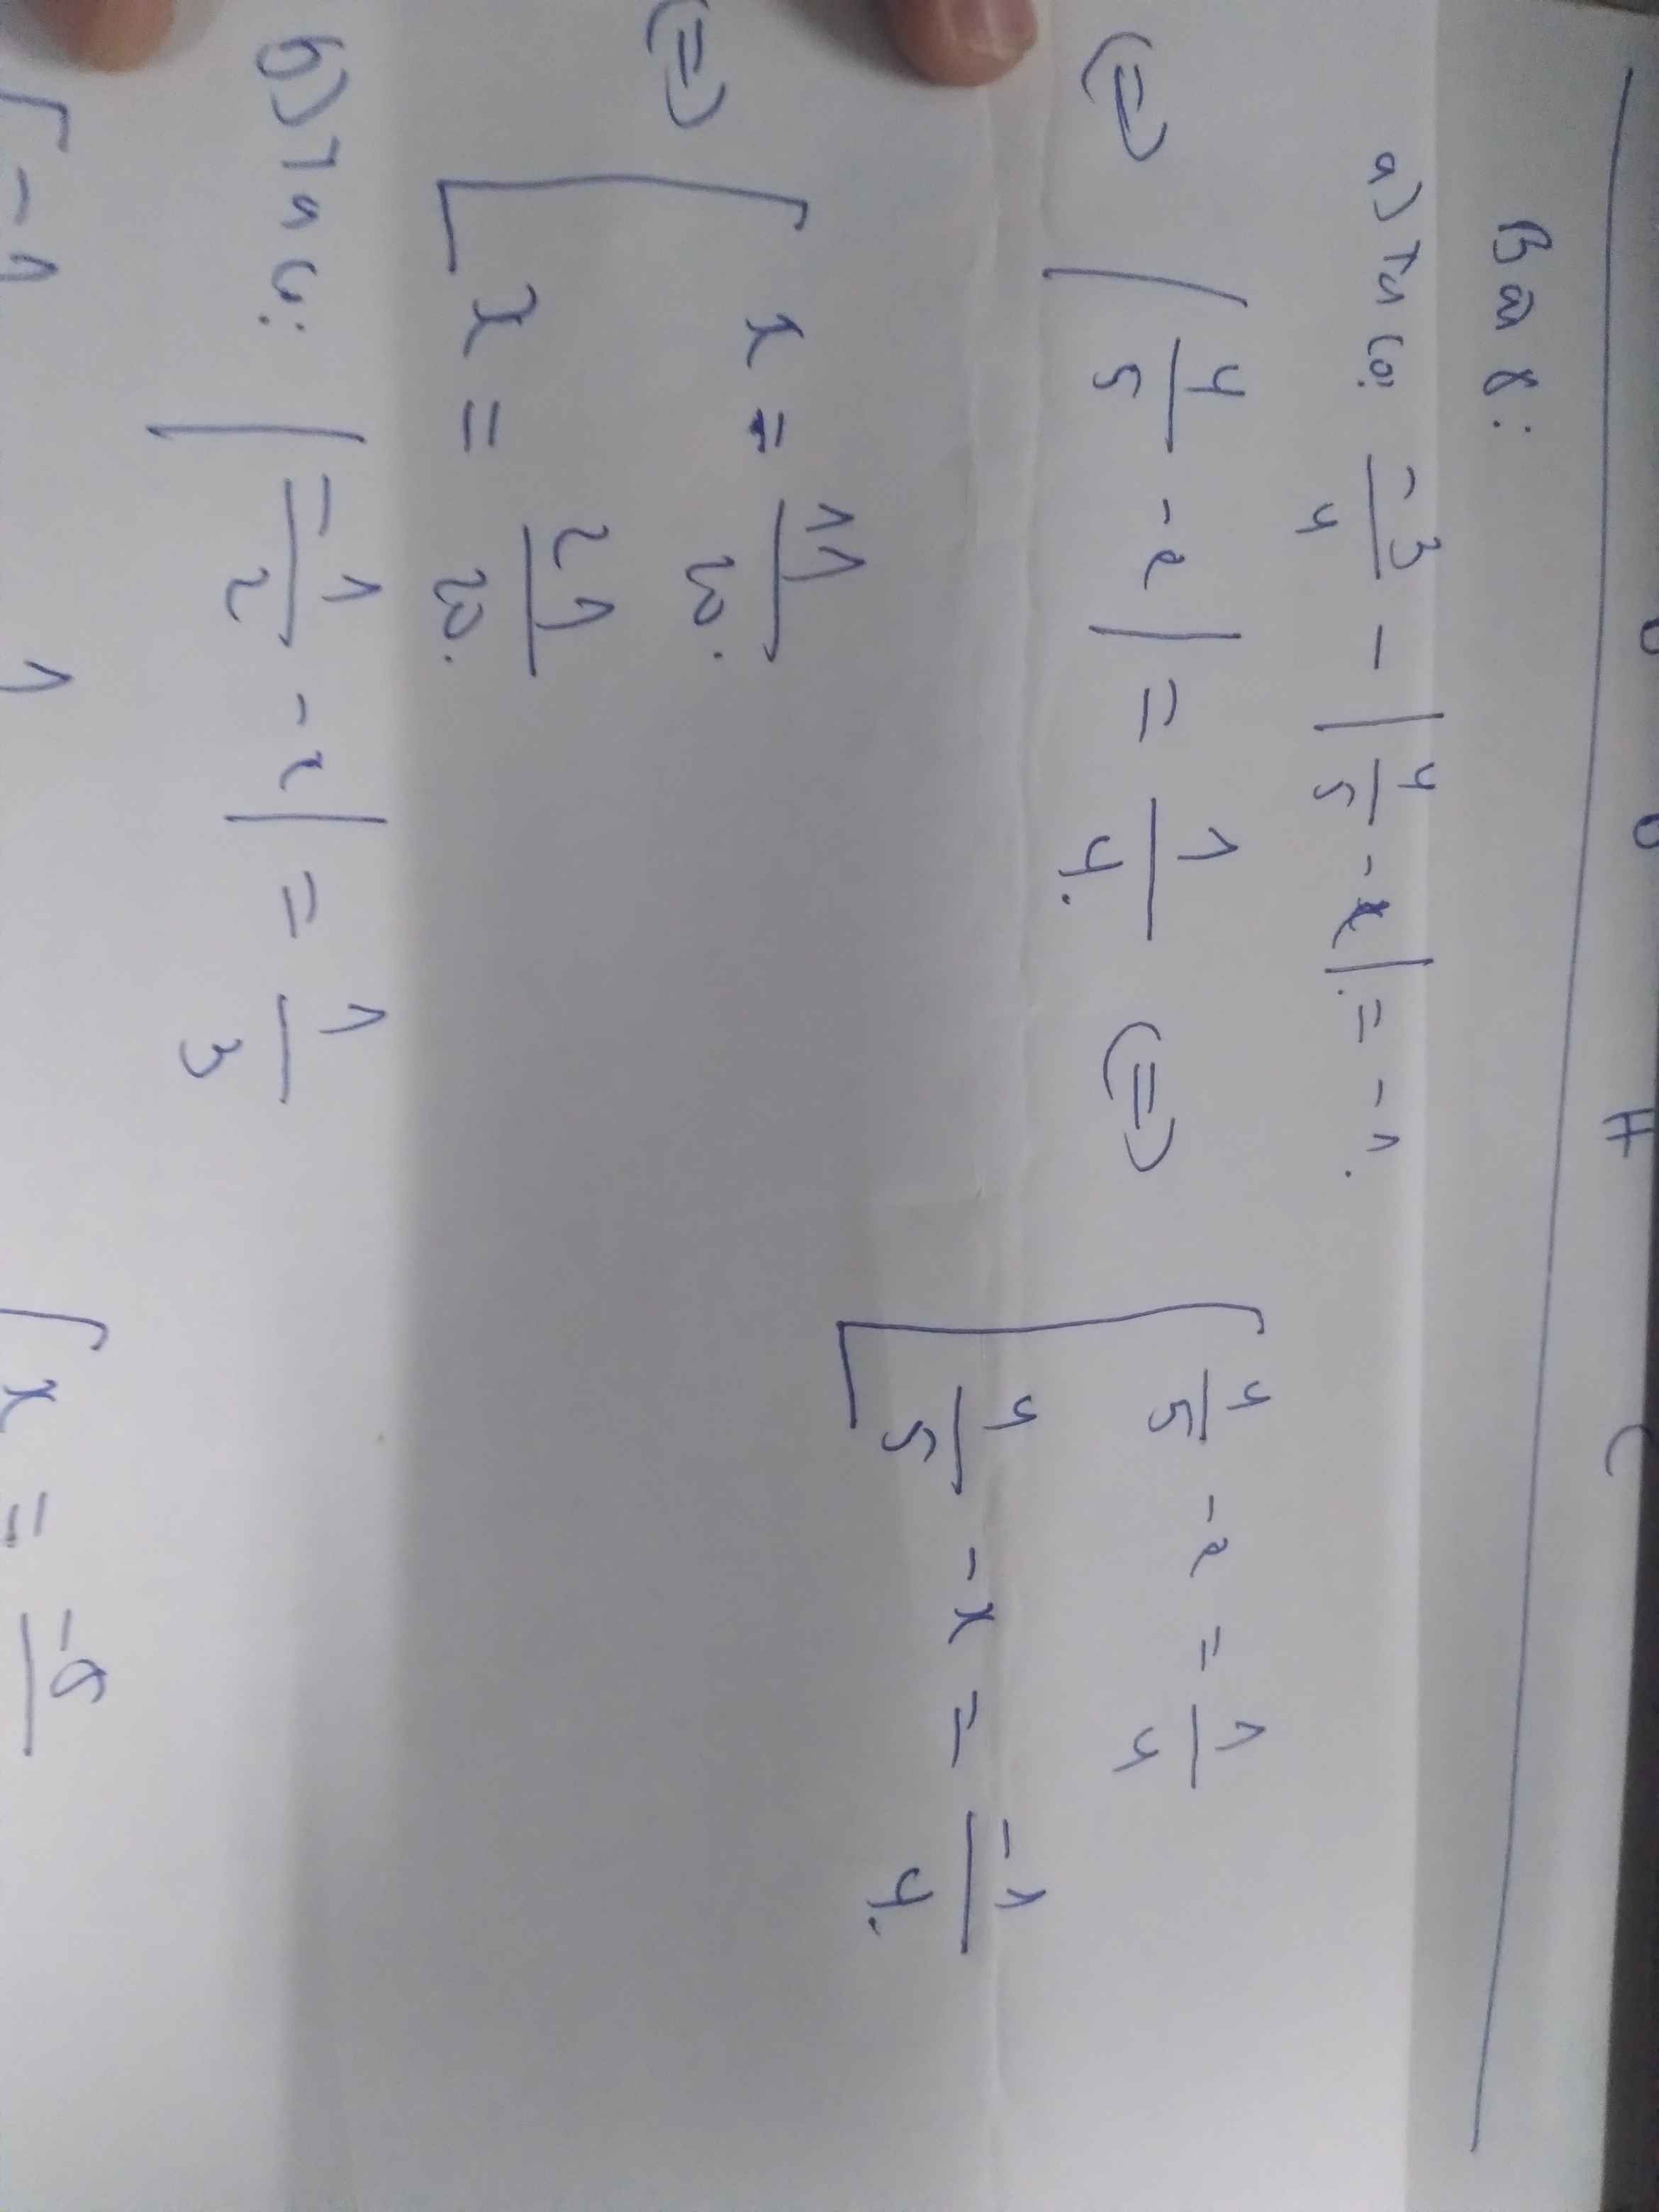 H C
Bài 8:
a) Ta có: -3/4 - |4/5 - x| = -1.
(=) |4/5 - x| = 1/4. (=) [ 4/5 - x = 1/4
4/5 - x = -1/4.
(=) [ x = 11/20.
x = 21/20.
b) Ta có: |-1/2 - x| = 1/3
[ -1 1 [ x = -5